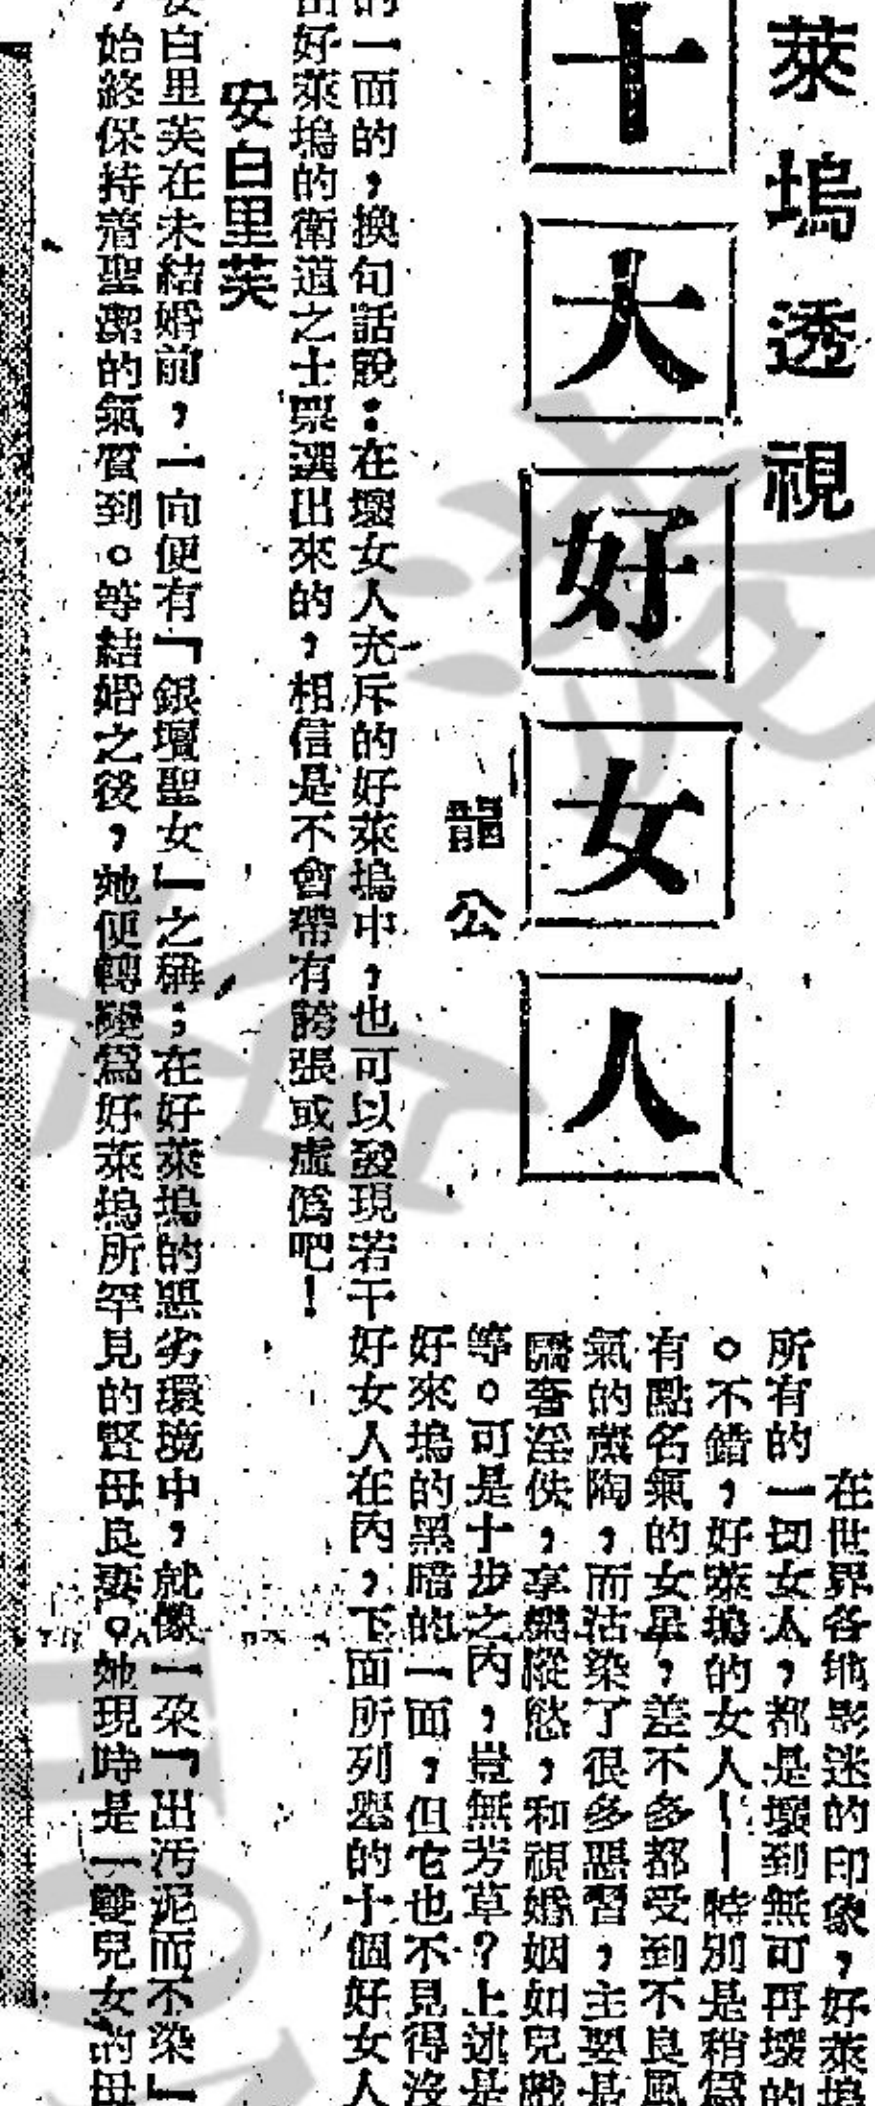 萊塢透視
十大好女人
龍公
在世界各地影迷的印象，好萊塢
所有的一切女人，都是壞到無可再壞的
。不錯，好萊塢的女人——特別是稍爲
有點名氣的女星，差不多都受到不良風
氣的薰陶，而沾染了很多惡習，主要是
驕奢淫佚，享樂縱慾，和視婚姻如兒戲
等。可是十步之內，豈無芳草？上述是
好來塢的黑暗的一面，但它也不見得沒
的一面的，換句話說：在壞女人充斥的好萊塢中，也可以發現若干好女人在內，下面所列舉的十個好女人
出好萊塢的衛道之士票選出來的，相信是不會帶有誇張或虛僞吧！
安白里芙
安白里芙在未結婚前，一向便有「銀壇聖女」之稱；在好萊塢的惡劣環境中，就像一朶「出污泥而不染」
，始終保持着聖潔的氣質到。等結婚之後，她便轉變爲好萊塢所罕見的賢母良妻。她現時是一雙兒女的母